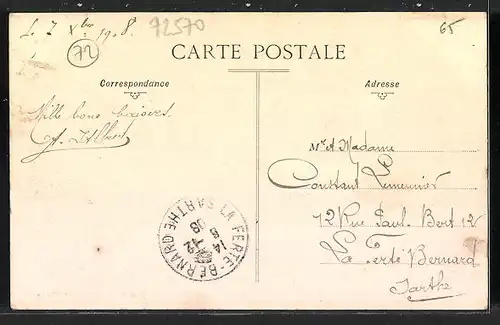 Le 7 Xbre 1908.
72
72570
65
CARTE POSTALE
Correspondance
Adresse
Mille bons baisers.
Mr et Madame
Constant Lemeunier
12 Rue Paul Bert 12
La Ferté Bernard
Sarthe
LA FERTE-BERNARD GARE SARTHE
14 5
-12
08